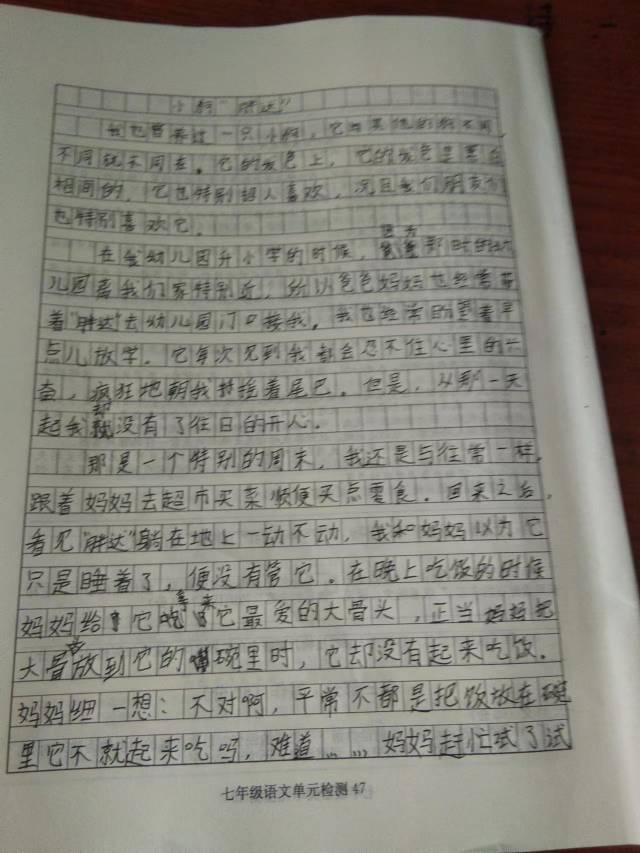 小狗"胖达"
我也曾养过一只小狗，它与其他的狗不同，
不同就不同在，它的发色上，它的发色是黑白
相间的，它也特别招人喜欢，况且我们朋友们
也特别喜欢它。
在我幼儿园升小学的时候，因为那时的幼
儿园离我们家特别近，所以爸爸妈妈也经常带
着"胖达"去幼儿园门口接我，我也经常盼望着早
点儿放学，它每次见到我都会忍不住心里的兴
奋，疯狂地朝我摇着尾巴。但是，从那一天
起我却没有了往日的开心。
那是一个特别的周末，我还是与往常一样，
跟着妈妈去超市买菜顺便买点零食。回来之后，
看见"胖达"躺在地上一动不动，我和妈妈以为它
只是睡着了，便没有管它。在晚上吃饭的时候
妈妈给它拿来它最爱的大骨头，正当妈妈把
大骨头放到它的碗里时，它却没有起来吃饭。
妈妈细一想：不对啊，平常不都是把饭放在碗
里它不就起来吃吗，难道……妈妈赶忙试了试
七年级语文单元检测 47